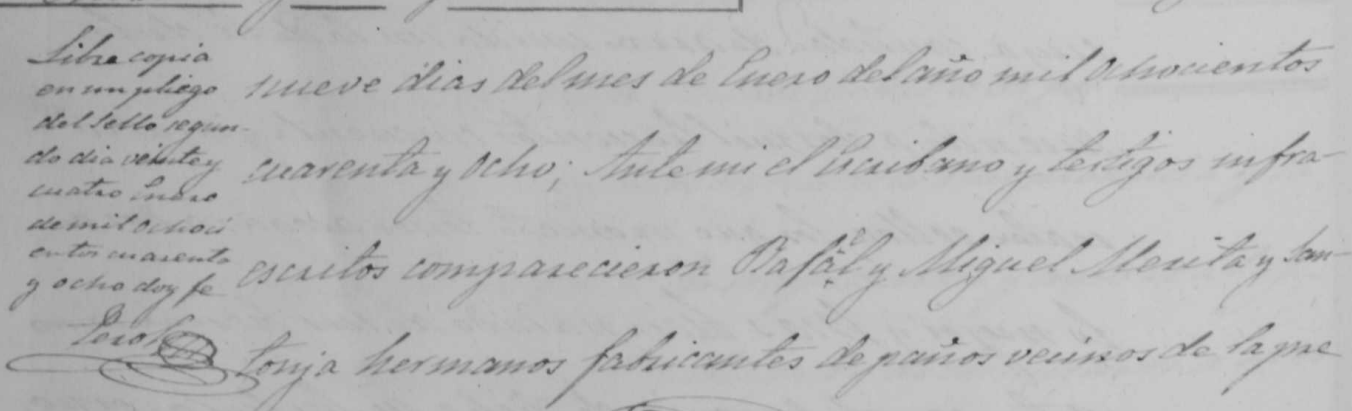 Libre copia
en un pliego
del sello segun-
do dia veinte y
cuatro Enero
de mil ochoci
entos cuarenta
y ocho doy fe
nueve dias del mes de Enero del año mil ochocientos
cuarenta y ocho; Ante mi el Escribano y testigos infra-
escritos comparecieron Rafael y Miguel Merita y San-
tonja hermanos fabricantes de paños vecinos de la pre